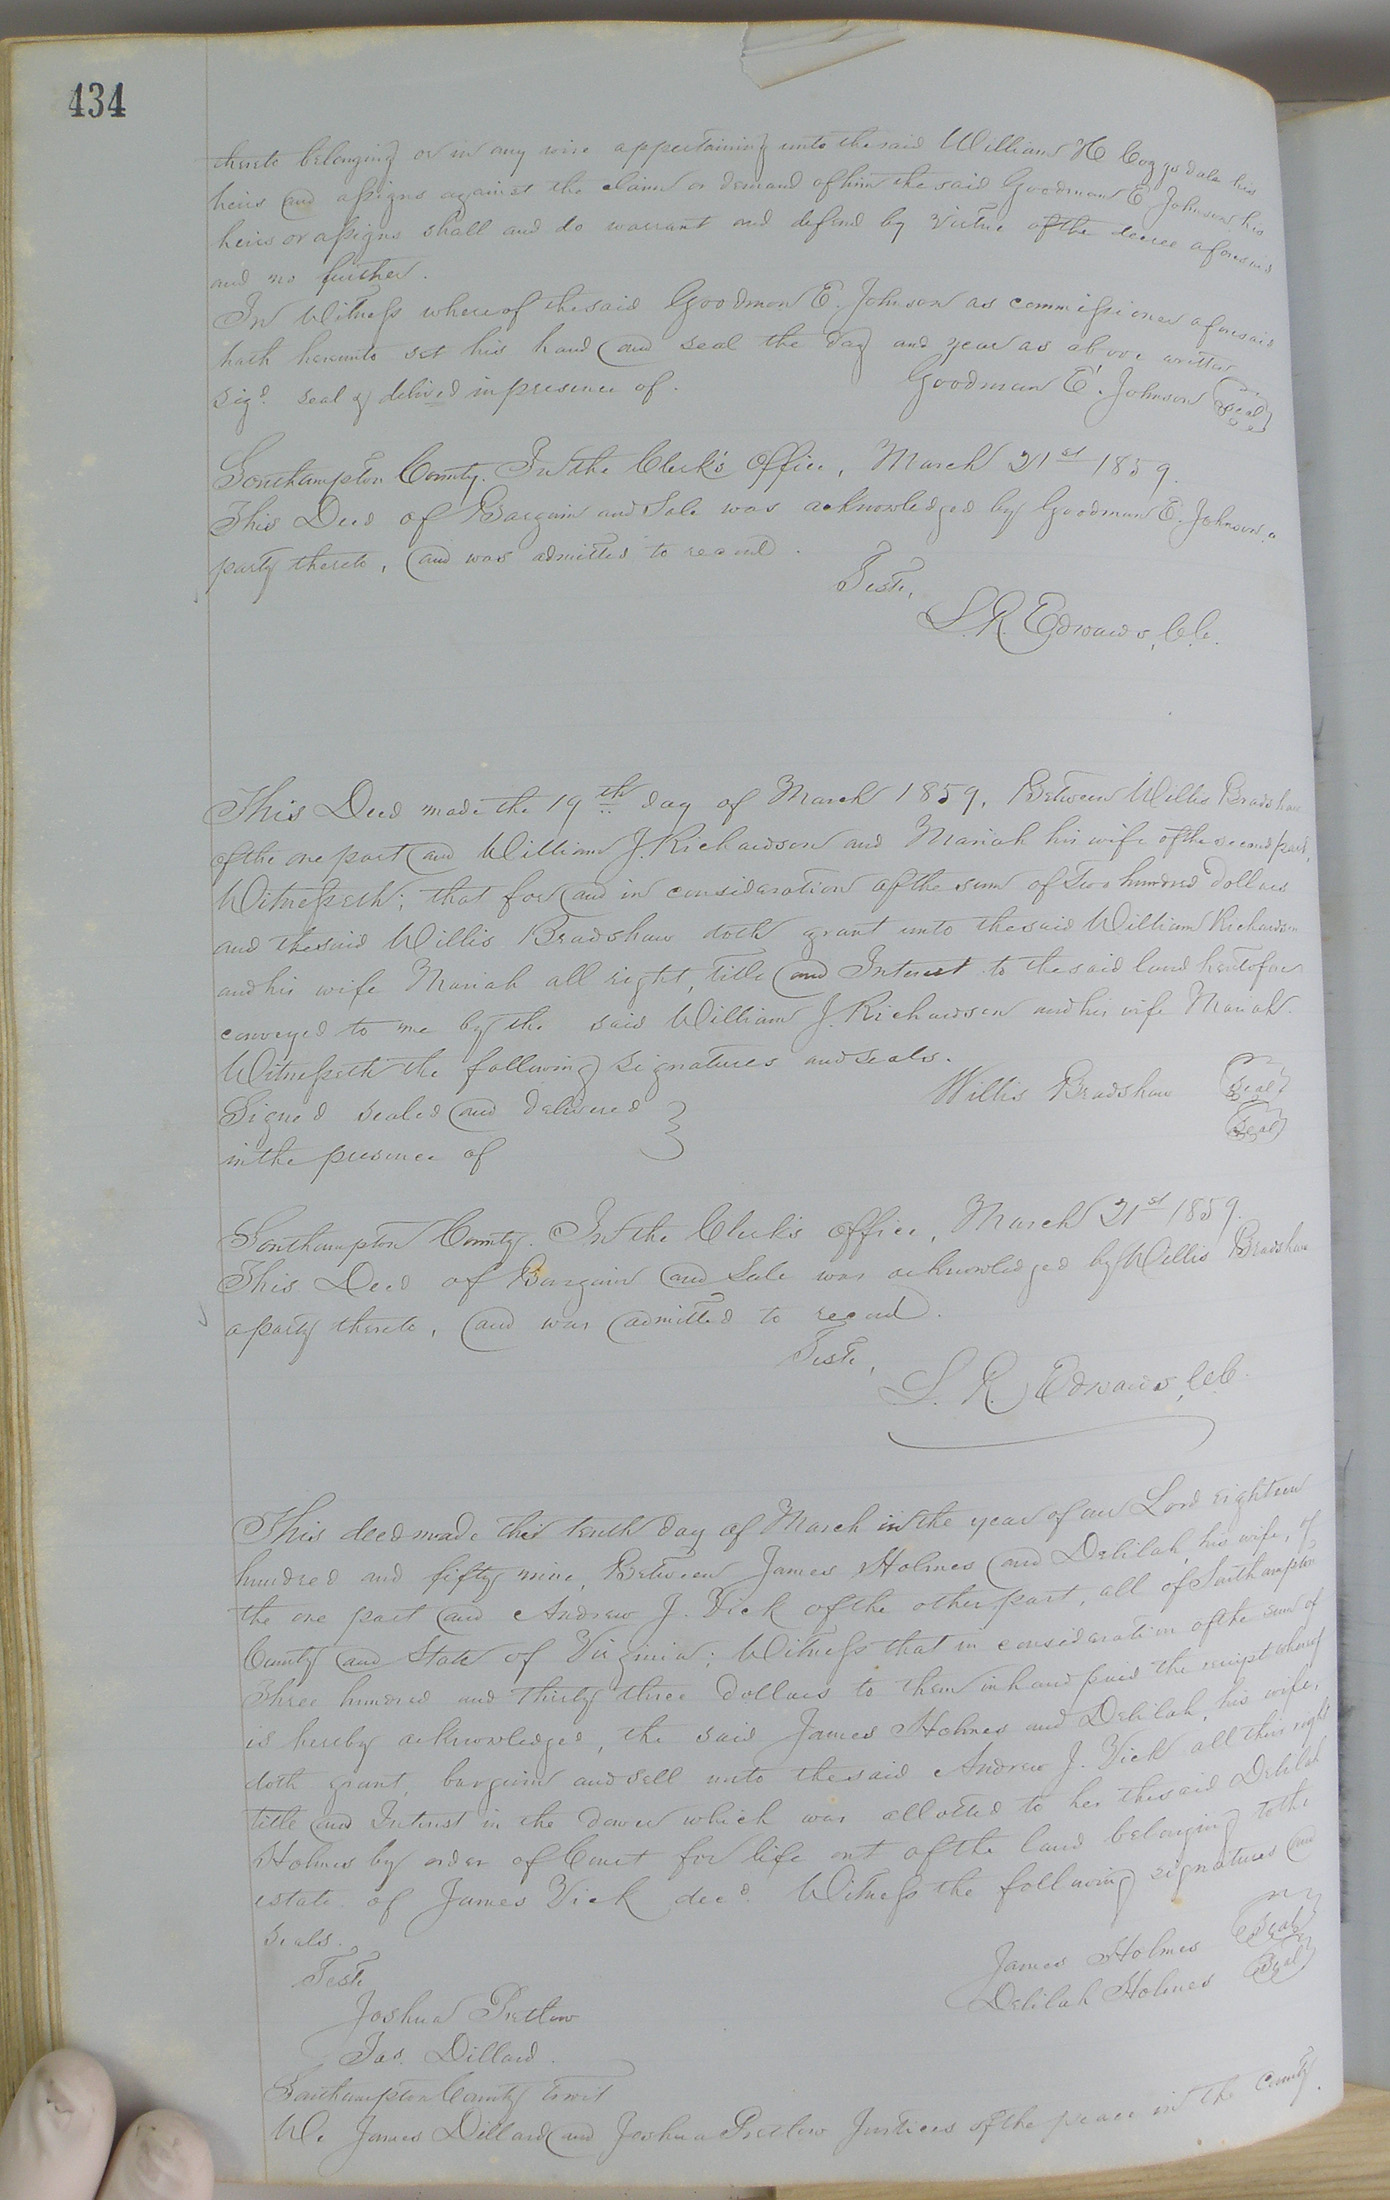 434
thereto belonging or in any wise appertaining unto the said William H Coggsdale his
heirs and assigns against the claim or demand of him the said Goodman E Johnson his
heirs or assigns shall and do warrant and defend by virtue of the decree aforesaid
and no further.
In Witness whereof the said Goodman E. Johnson as commissioner aforesaid
hath hereunto set his hand and seal the day and year as above written
Sigd. seal & delived in presence of. Goodman E. Johnson Seal
Southampton County. In the Clerk's Office, March 21st 1859.
This Deed of Bargain and Sale was acknowledged by Goodman E. Johnson a
party thereto, and was admitted to record.
Teste,
L. R. Edwards, C.C.
This Deed made the 19th day of March 1859, Between Willis Bradshaw
of the one part and William J. Richardson and Mariah his wife of the second part,
Witnesseth; that for and in consideration of the sum of Two hundred dollars
and the said Willis Bradshaw doth grant unto the said William Richardson
and his wife Mariah all right, title and Interest to the said land heretofore
conveyed to me by the said William J. Richardson and his wife Mariah.
Witnesseth the following signatures and seals.
Willis Bradshaw Seal
Signed sealed and delivered
Seal
in the presence of
Southampton County. In the Clerk's Office, March 21st 1859.
This Deed of Bargain and Sale was acknowledged by Willis Bradshaw
a party thereto, and was admitted to record.
Teste,
L. R. Edwards, C.C.
This deed made this tenth day of March in the year of our Lord eighteen
hundred and fifty nine, Between James Holmes and Delilah, his wife, of
the one part and Andrew J. Vick of the other part, all of Southampton
County and State of Virginia; Witness that in consideration of the sum of
Three hundred and thirty three Dollars to them in hand paid the receipt whereof
is hereby acknowledged, the said James Holmes and Delilah, his wife,
doth grant, bargain and sell unto the said Andrew J. Vick all their right
title and Interest in the dower which was allotted to her the said Delilah
Holmes by order of Court for life out of the land belonging to the
estate of James Vick decd. Witness the following signatures and
seals.
James Holmes Seal
Teste
Delilah Holmes Seal
Joshua Pretlow
Jas. Dillard.
Southampton County towit
We James Dillard and Joshua Pretlow Justices of the peace in the County